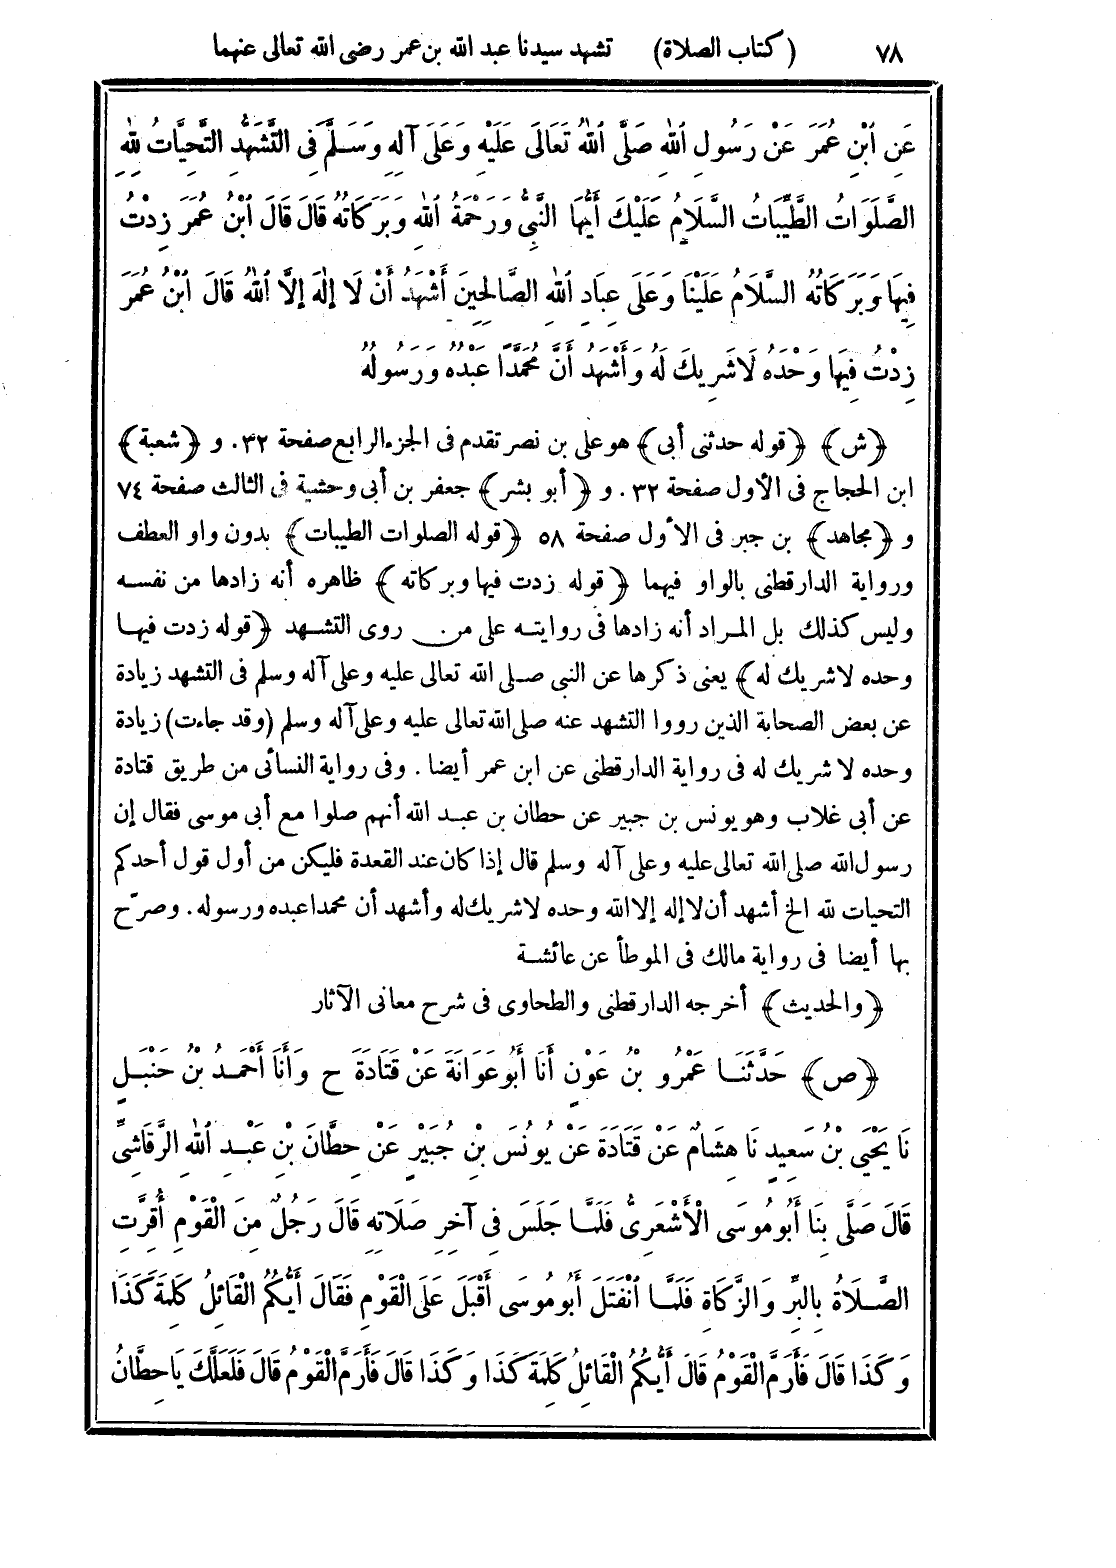 ٧٨ (كتاب الصلاة) تشهد سيدنا عبد الله بن عمر رضى الله تعالى عنهما
عَنِ ٱبْنِ عُمَرَ عَنْ رَسُولِ ٱللهِ صَلَّى ٱللهُ تَعَالَى عَلَيْهِ وَعَلَى آلِهِ وَسَلَّمَ فِى التَّشَهُّدِ التَّحِيَّاتُ لِلّٰهِ
الصَّلَوَاتُ الطَّيِّبَاتُ السَّلَامُ عَلَيْكَ أَيُّهَا النَّبِىُّ وَرَحْمَةُ ٱللهِ وَبَرَكَاتُهُ قَالَ قَالَ ٱبْنُ عُمَرَ زِدْتُ
فِيهَا وَبَرَكَاتُهُ السَّلَامُ عَلَيْنَا وَعَلَى عِبَادِ ٱللهِ الصَّالِحِينَ أَشْهَدُ أَنْ لَا إِلٰهَ إِلَّا ٱللهُ قَالَ ٱبْنُ عُمَرَ
زِدْتُ فِيهَا وَحْدَهُ لَا شَرِيكَ لَهُ وَأَشْهَدُ أَنَّ مُحَمَّدًا عَبْدُهُ وَرَسُولُهُ
﴿ش﴾ ﴿قوله حدثنى أبى﴾ هو على بن نصر تقدم فى الجزء الرابع صفحة ٣٢. و ﴿شعبة﴾
ابن الحجاج فى الأول صفحة ٣٢. و ﴿أبو بشر﴾ جعفر بن أبى وحشية فى الثالث صفحة ٧٤
و ﴿مجاهد﴾ بن جبر فى الأول صفحة ٥٨ ﴿قوله الصلوات الطيبات﴾ بدون واو العطف
ورواية الدارقطنى بالواو فيهما ﴿قوله زدت فيها وبركاته﴾ ظاهره أنه زادها من نفسه
وليس كذلك بل المراد أنه زادها فى روايته على من روى التشهد ﴿قوله زدت فيها
وحده لا شريك له﴾ يعنى ذكرها عن النبى صلى الله تعالى عليه وعلى آله وسلم فى التشهد زيادة
عن بعض الصحابة الذين رووا التشهد عنه صلى الله تعالى عليه وعلى آله وسلم (وقد جاءت) زيادة
وحده لا شريك له فى رواية الدارقطنى عن ابن عمر أيضا. وفى رواية النسائى من طريق قتادة
عن أبى غلاب وهو يونس بن جبير عن حطان بن عبد الله أنهم صلوا مع أبى موسى فقال إن
رسول الله صلى الله تعالى عليه وعلى آله وسلم قال إذا كان عند القعدة فليكن من أول قول أحدكم
التحيات لله الخ أشهد أن لا إله إلا الله وحده لا شريك له وأشهد أن محمدا عبده ورسوله. وصرّح
بها أيضا فى رواية مالك فى الموطأ عن عائشة
﴿والحديث﴾ أخرجه الدارقطنى والطحاوى فى شرح معانى الآثار
﴿ص﴾ حَدَّثَنَا عَمْرُو بْنُ عَوْنٍ أَنَا أَبُو عَوَانَةَ عَنْ قَتَادَةَ ح وَأَنَا أَحْمَدُ بْنُ حَنْبَلٍ
نَا يَحْيَى بْنُ سَعِيدٍ نَا هِشَامٌ عَنْ قَتَادَةَ عَنْ يُونُسَ بْنِ جُبَيْرٍ عَنْ حِطَّانَ بْنِ عَبْدِ ٱللهِ الرَّقَاشِىِّ
قَالَ صَلَّى بِنَا أَبُو مُوسَى الْأَشْعَرِىُّ فَلَمَّا جَلَسَ فِى آخِرِ صَلَاتِهِ قَالَ رَجُلٌ مِنَ الْقَوْمِ أُقِرَّتِ
الصَّلَاةُ بِالبِرِّ وَالزَّكَاةِ فَلَمَّا ٱنْفَتَلَ أَبُو مُوسَى أَقْبَلَ عَلَى الْقَوْمِ فَقَالَ أَيُّكُمُ الْقَائِلُ كَلِمَةَ كَذَا
وَكَذَا قَالَ فَأَرَمَّ الْقَوْمُ قَالَ أَيُّكُمُ الْقَائِلُ كَلِمَةَ كَذَا وَكَذَا قَالَ فَأَرَمَّ الْقَوْمُ قَالَ فَلَعَلَّكَ يَا حِطَّانُ